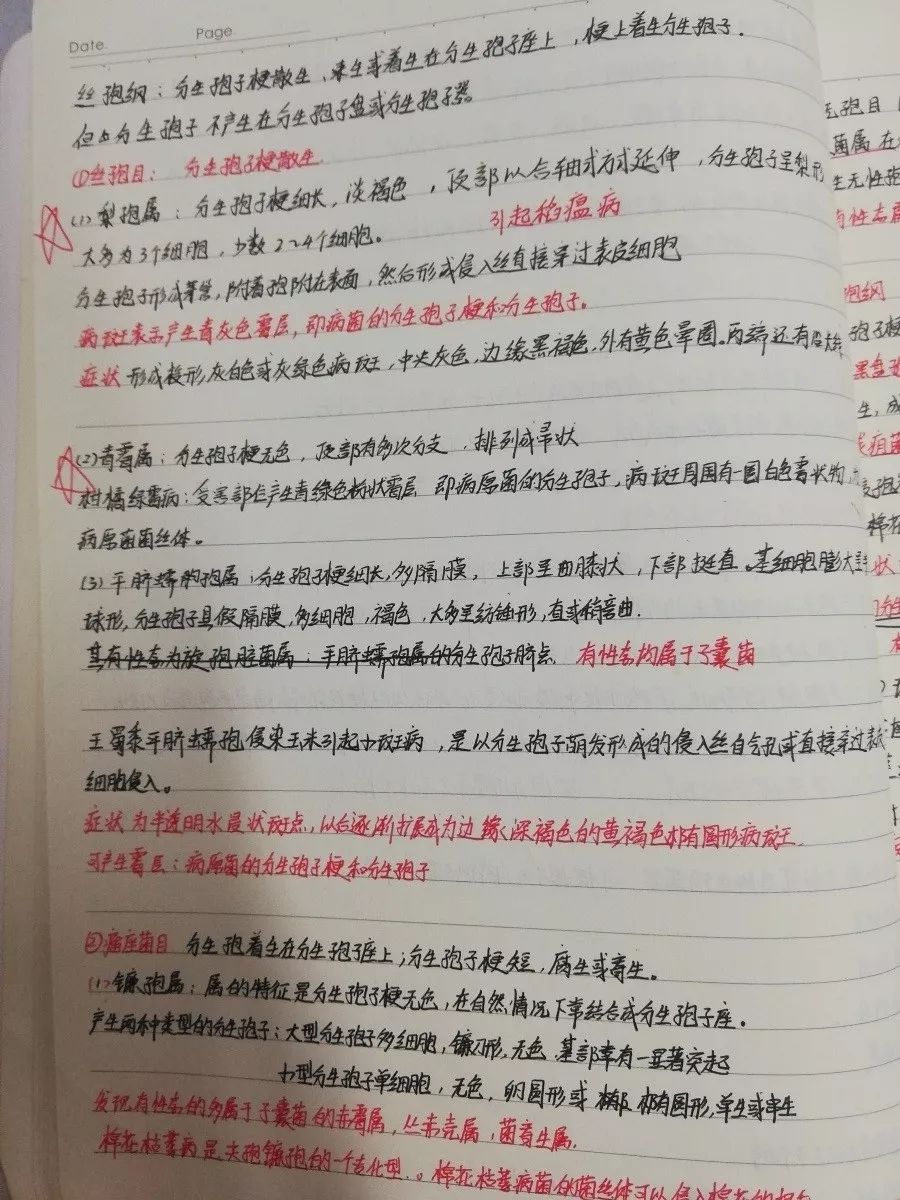 Date
Page
丝孢纲：分生孢子梗散生、束生或着生在分生孢子座上，梗上着生分生孢子.
但 分生孢子不产生在分生孢子盘或分生孢子器。
①丝孢目： 分生孢子梗散生
(1) 梨孢属：分生孢子梗细长，淡褐色，顶部以合轴式方式延伸，分生孢子呈梨形
大多为3个细胞，少数2~4个细胞。 引起稻瘟病
分生孢子形成芽管，附着孢附在表面，然后形成侵入丝直接穿过表皮细胞
病斑表示产生青灰色霉层，即病菌的分生孢子梗和分生孢子。
症状 形成梭形，灰白色或灰绿色病斑，中央灰色，边缘黑褐色，外有黄色晕圈。两端还有
(2) 青霉属：分生孢子梗无色，顶部有多次分支，排列成帚状
柑橘绿霉病：受害部位产生青绿色粉状霉层 即病原菌的分生孢子，病斑周围有一圈白色霉状物
病原菌菌丝体。
(3) 平脐蠕孢属：分生孢子梗细长，多隔膜，上部呈曲膝状，下部挺直，基细胞膨大
球形，分生孢子具假隔膜，多细胞，褐色，大多呈纺锤形，直或稍弯曲.
其有性态为旋孢腔菌属，平脐蠕孢属的分生孢子脐点 有性态均属于子囊菌
玉蜀黍平脐蠕孢侵染玉米引起小斑病，是以分生孢子萌发形成的侵入丝自气孔或直接穿过表皮
细胞侵入。
症状为半透明水浸状斑点，以后逐渐扩展成为边缘深褐色的黄褐色椭圆形病斑
可产生霉层：病原菌的分生孢子梗和分生孢子
②瘤座菌目 分生孢着生在分生孢子座上；分生孢子梗短，腐生或寄生。
(1) 镰孢属：属的特征是分生孢子梗无色，在自然情况下常结合成分生孢子座。
产生两种类型的分生孢子：大型分生孢子多细胞，镰刀形，无色 基部常有一显著突起
小型分生孢子单细胞，无色，卵圆形或 椭圆形，单生或串生
发现有性态的多属于子囊菌的赤霉属，丛赤壳属，菌寄生属.
棉花枯萎病是尖孢镰孢的一个专化型。棉花枯萎病菌的菌丝体可以侵入棉花的
孢目
菌属 在
生无性孢
有性态属
孢纲
孢子梗
黑盘孢
生，成
棉花
状